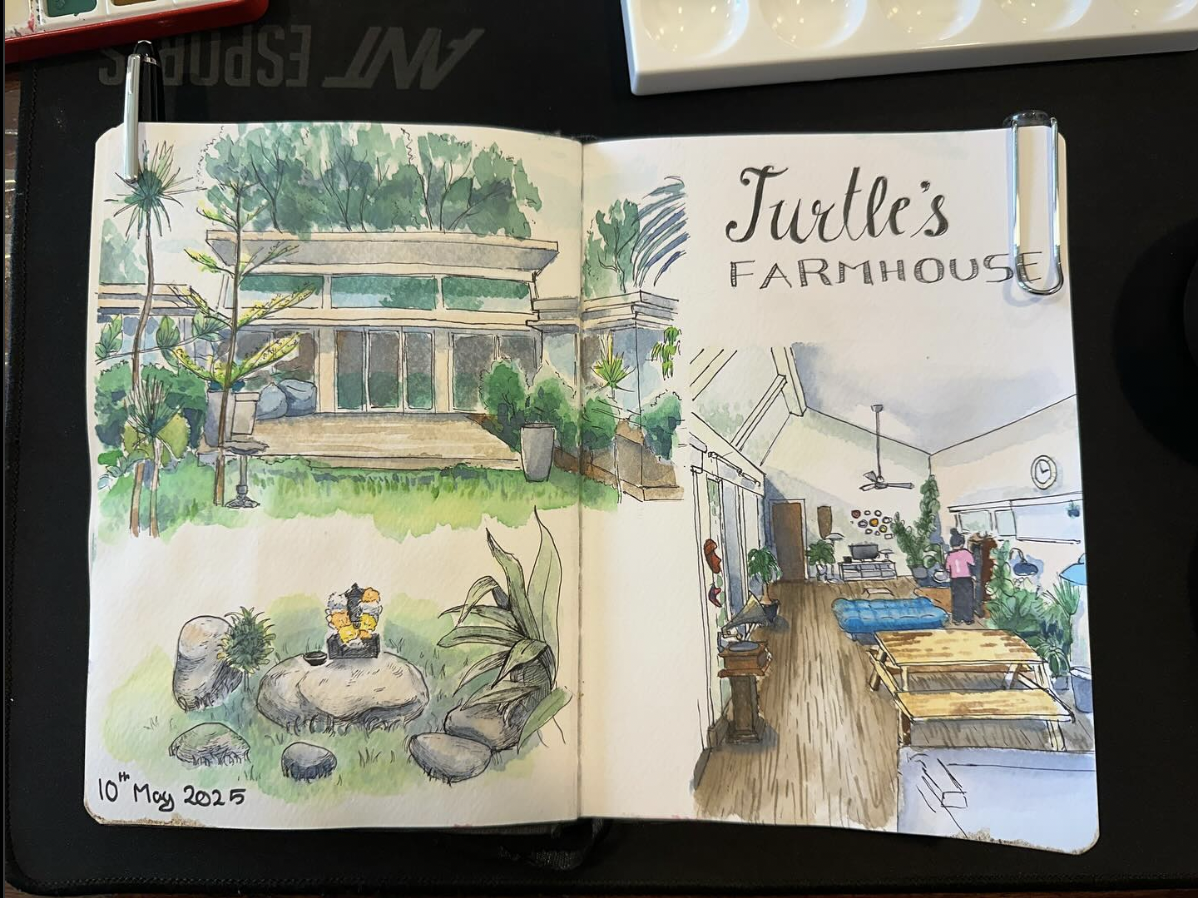 ANT ESPORTS
Turtle's
FARMHOUSE
10th May 2025